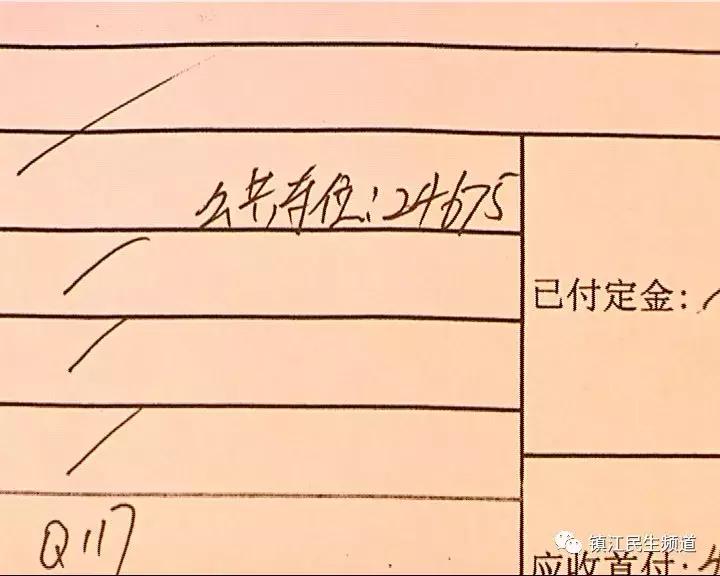 公共车位:24675
已付定金:
Q117
应收首付:
镇江民生频道